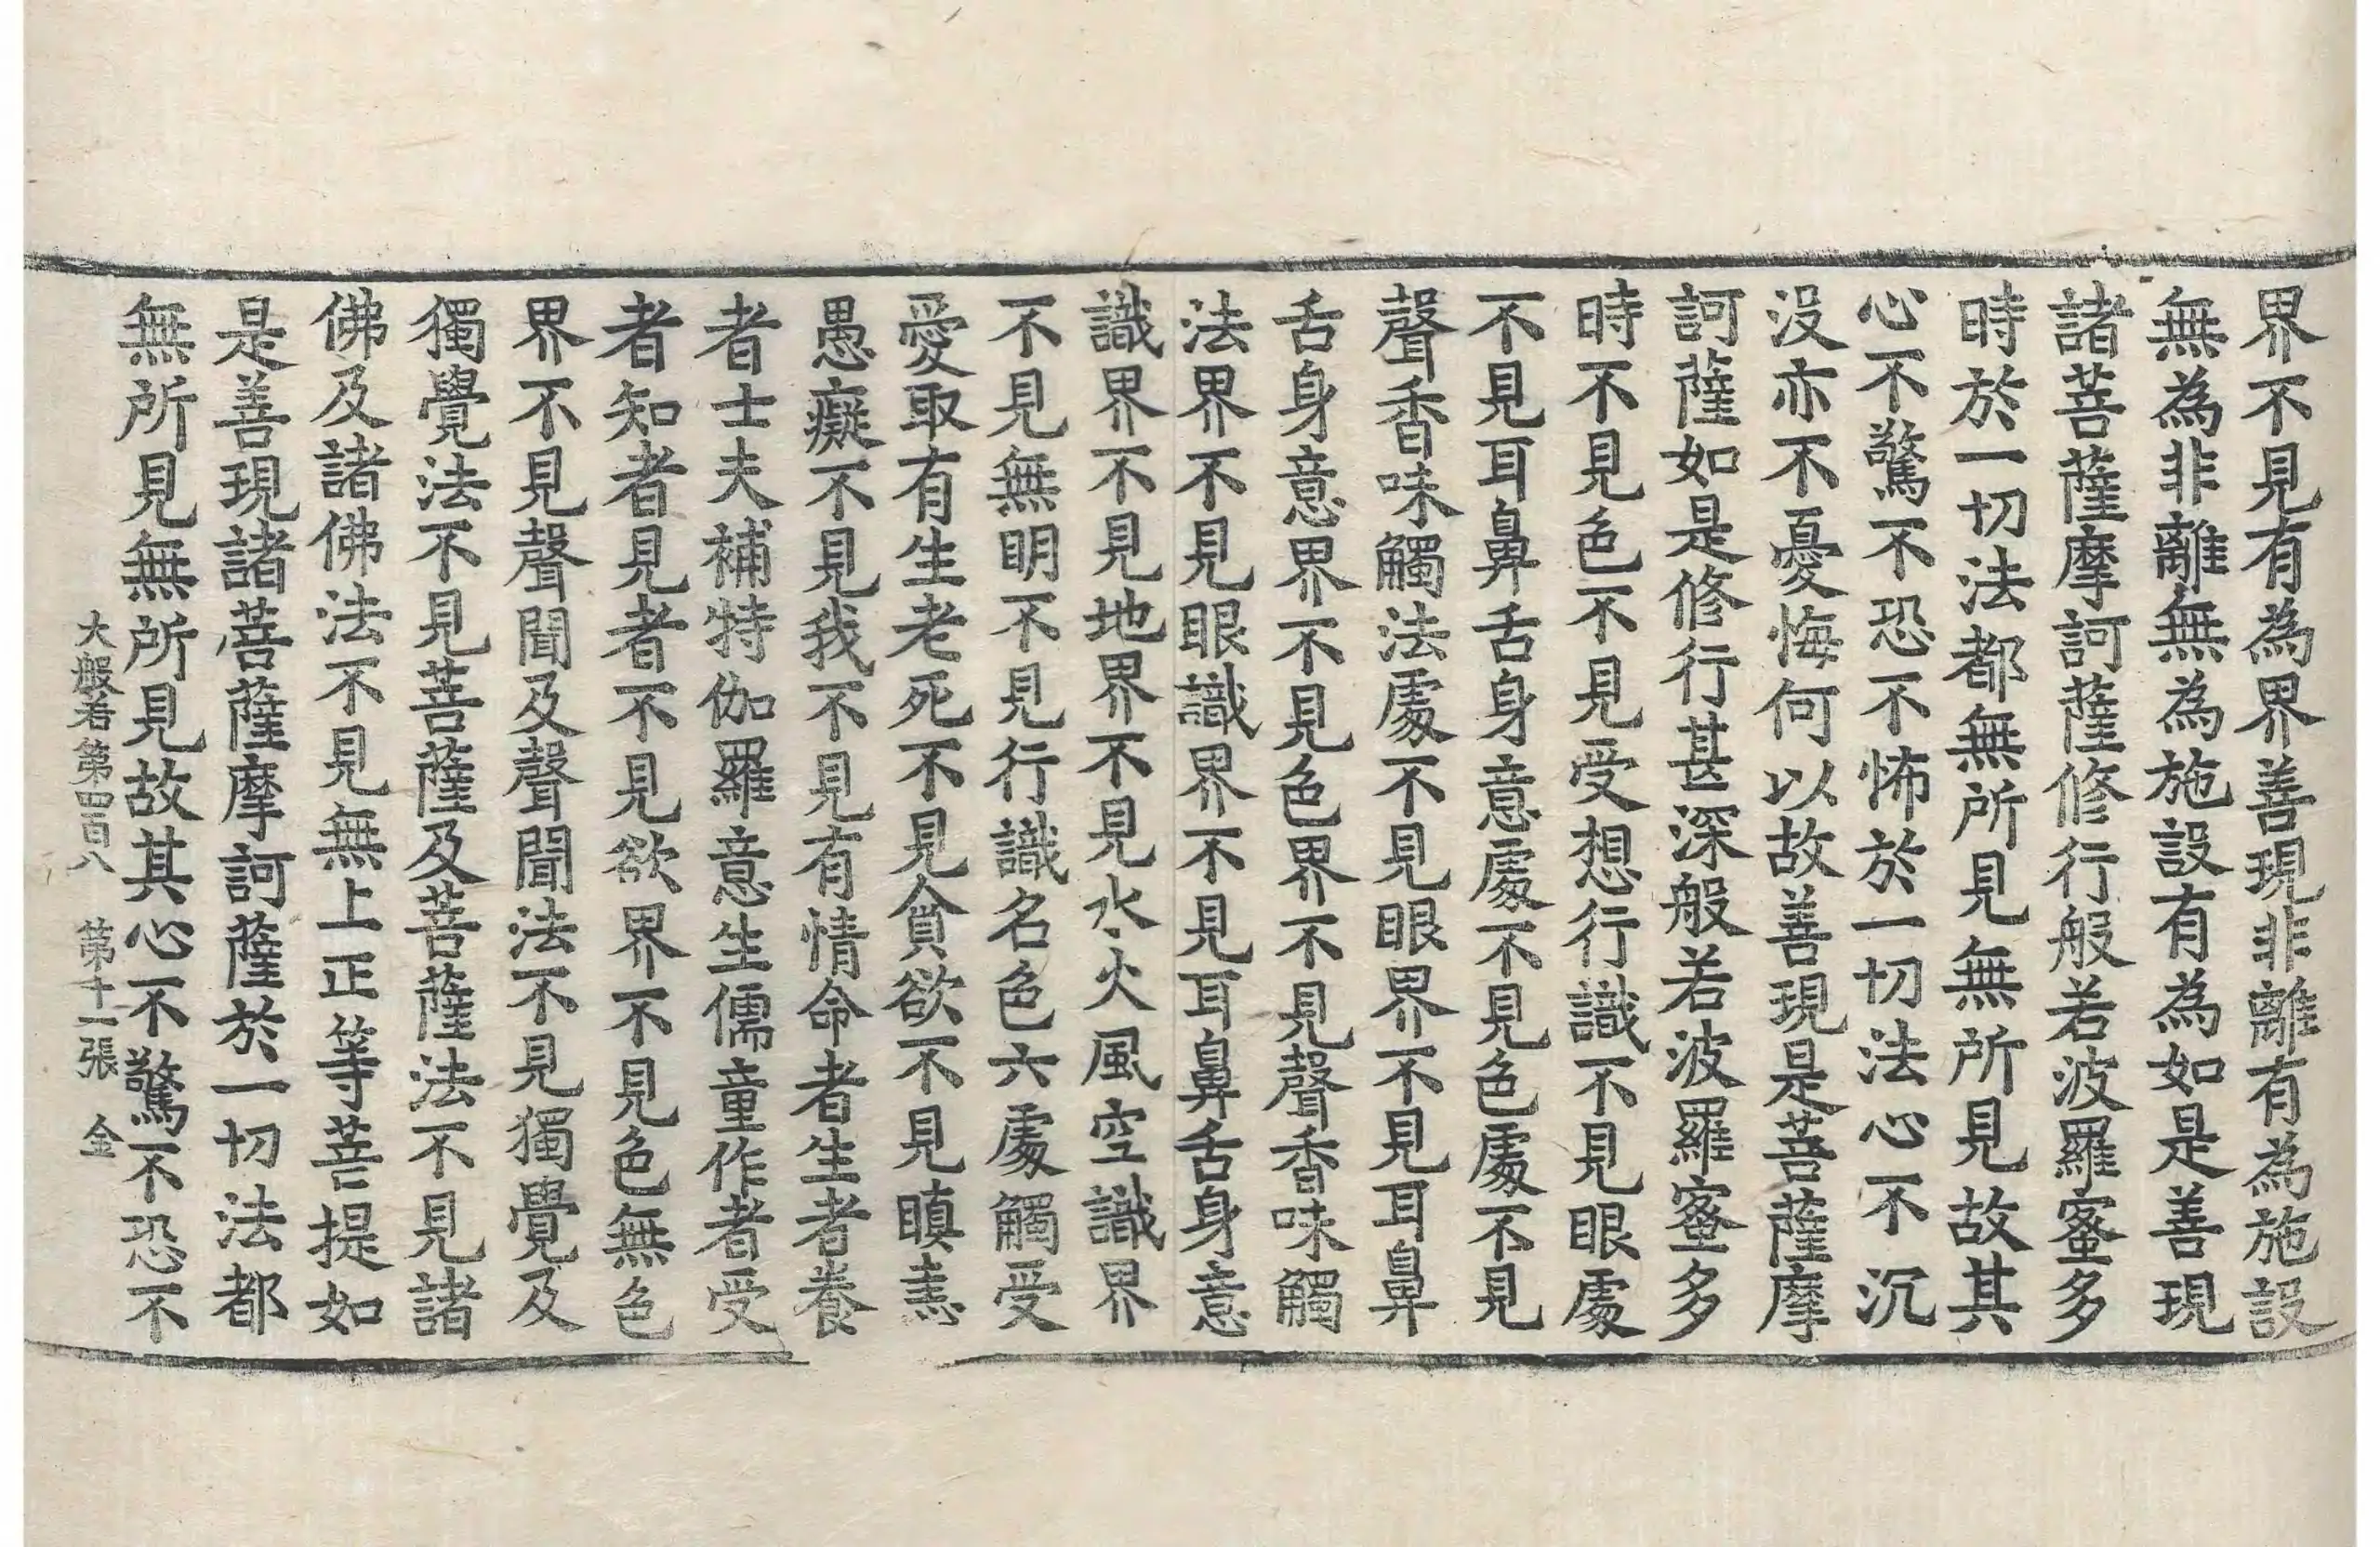 界不見有為界善現非離有為施設
無為非離無為施設有為如是善現
諸菩薩摩訶薩修行般若波羅蜜多
時於一切法都無所見無所見故其
心不驚不恐不怖於一切法心不沉
沒亦不憂悔何以故善現是菩薩摩
訶薩如是修行甚深般若波羅蜜多
時不見色不見受想行識不見眼處
不見耳鼻舌身意處不見色處不見
聲香味觸法處不見眼界不見耳鼻
舌身意界不見色界不見聲香味觸
法界不見眼識界不見耳鼻舌身意
識界不見地界不見水火風空識界
不見無明不見行識名色六處觸受
愛取有生老死不見貪欲不見瞋恚
愚癡不見我不見有情命者生者養
者士夫補特伽羅意生儒童作者受
者知者見者不見欲界不見色無色
界不見聲聞及聲聞法不見獨覺及
獨覺法不見菩薩及菩薩法不見諸
佛及諸佛法不見無上正等菩提如
是善現諸菩薩摩訶薩於一切法都
無所見無所見故其心不驚不恐不
大般若第四百八 第十一張 金